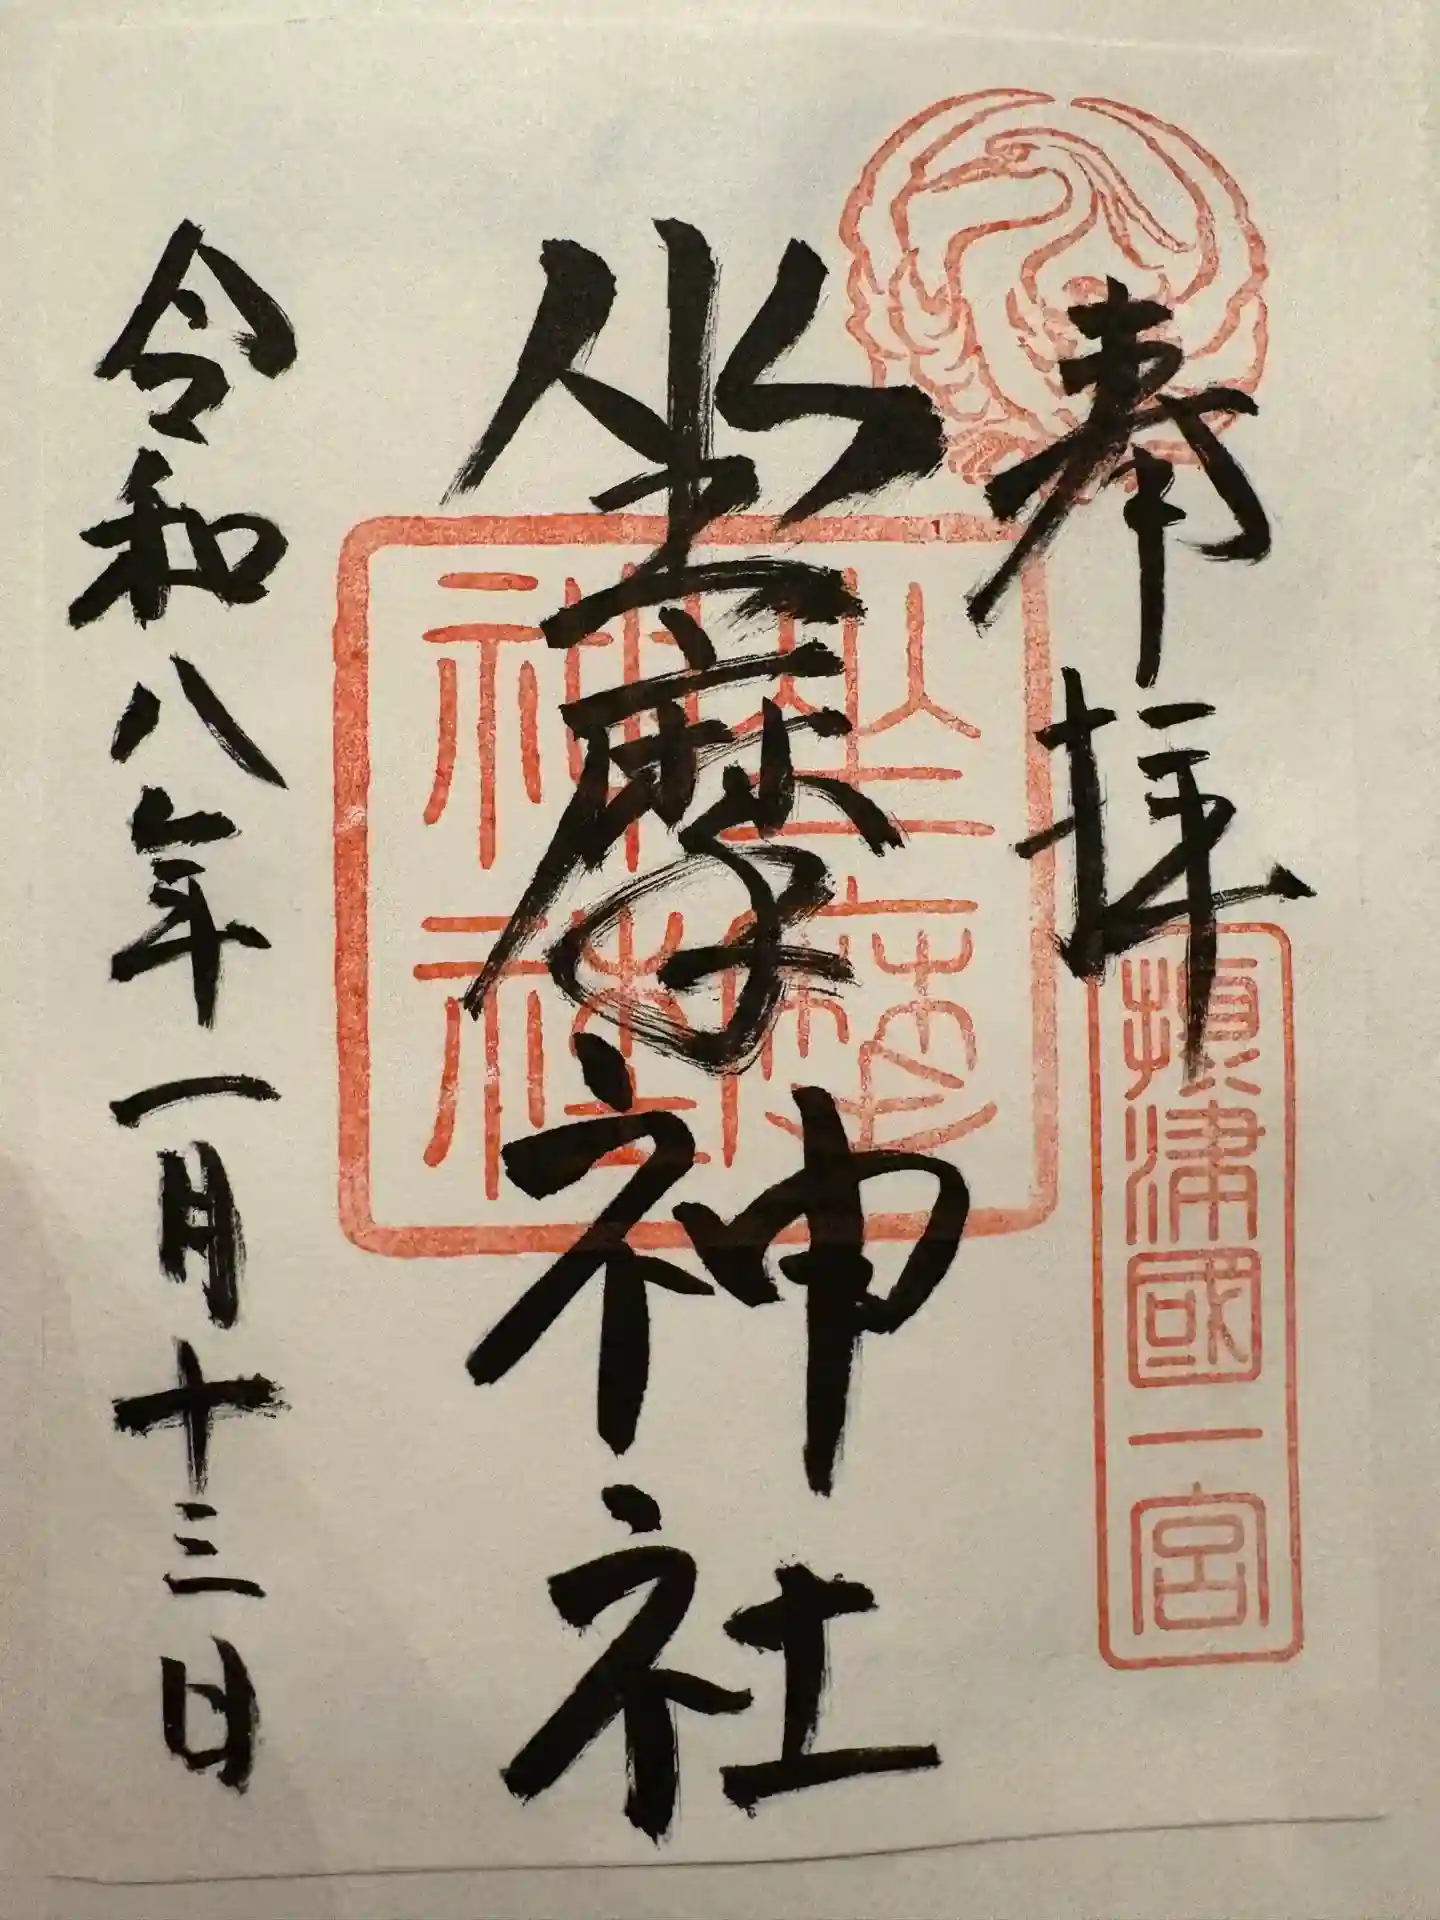 奉拝
攝津國一宮
坐摩神社
坐摩神社
令和八年一月十三日